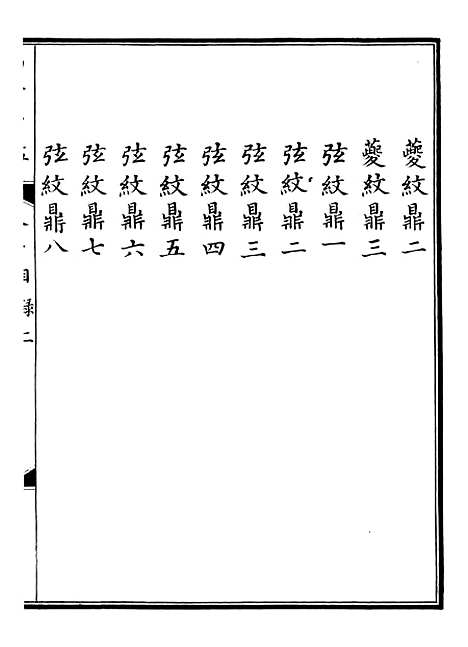 夔紋鼎二
夔紋鼎三
弦紋鼎一
弦紋鼎二
弦紋鼎三
弦紋鼎四
弦紋鼎五
弦紋鼎六
弦紋鼎七
弦紋鼎八
目錄二